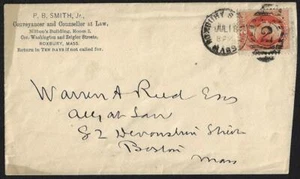 P. B. SMITH, Jr.,
Conveyancer and Counsellor at Law,
Building, Room 2,
Cor. Washington and Zeigler Streets,
ROXBURY, MASS.
Return in TEN DAYS if not called for.
JUL 18
MASS
2
Warren A Reed Esq
Atty at Law
82 Devonshire Street
Boston
Mass